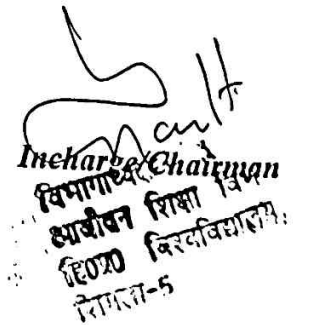 Incharge/Chairman
विभागाध्यक्ष
आजीवन शिक्षा विभाग
हि०प्र० विश्वविद्यालय,
शिमला-5